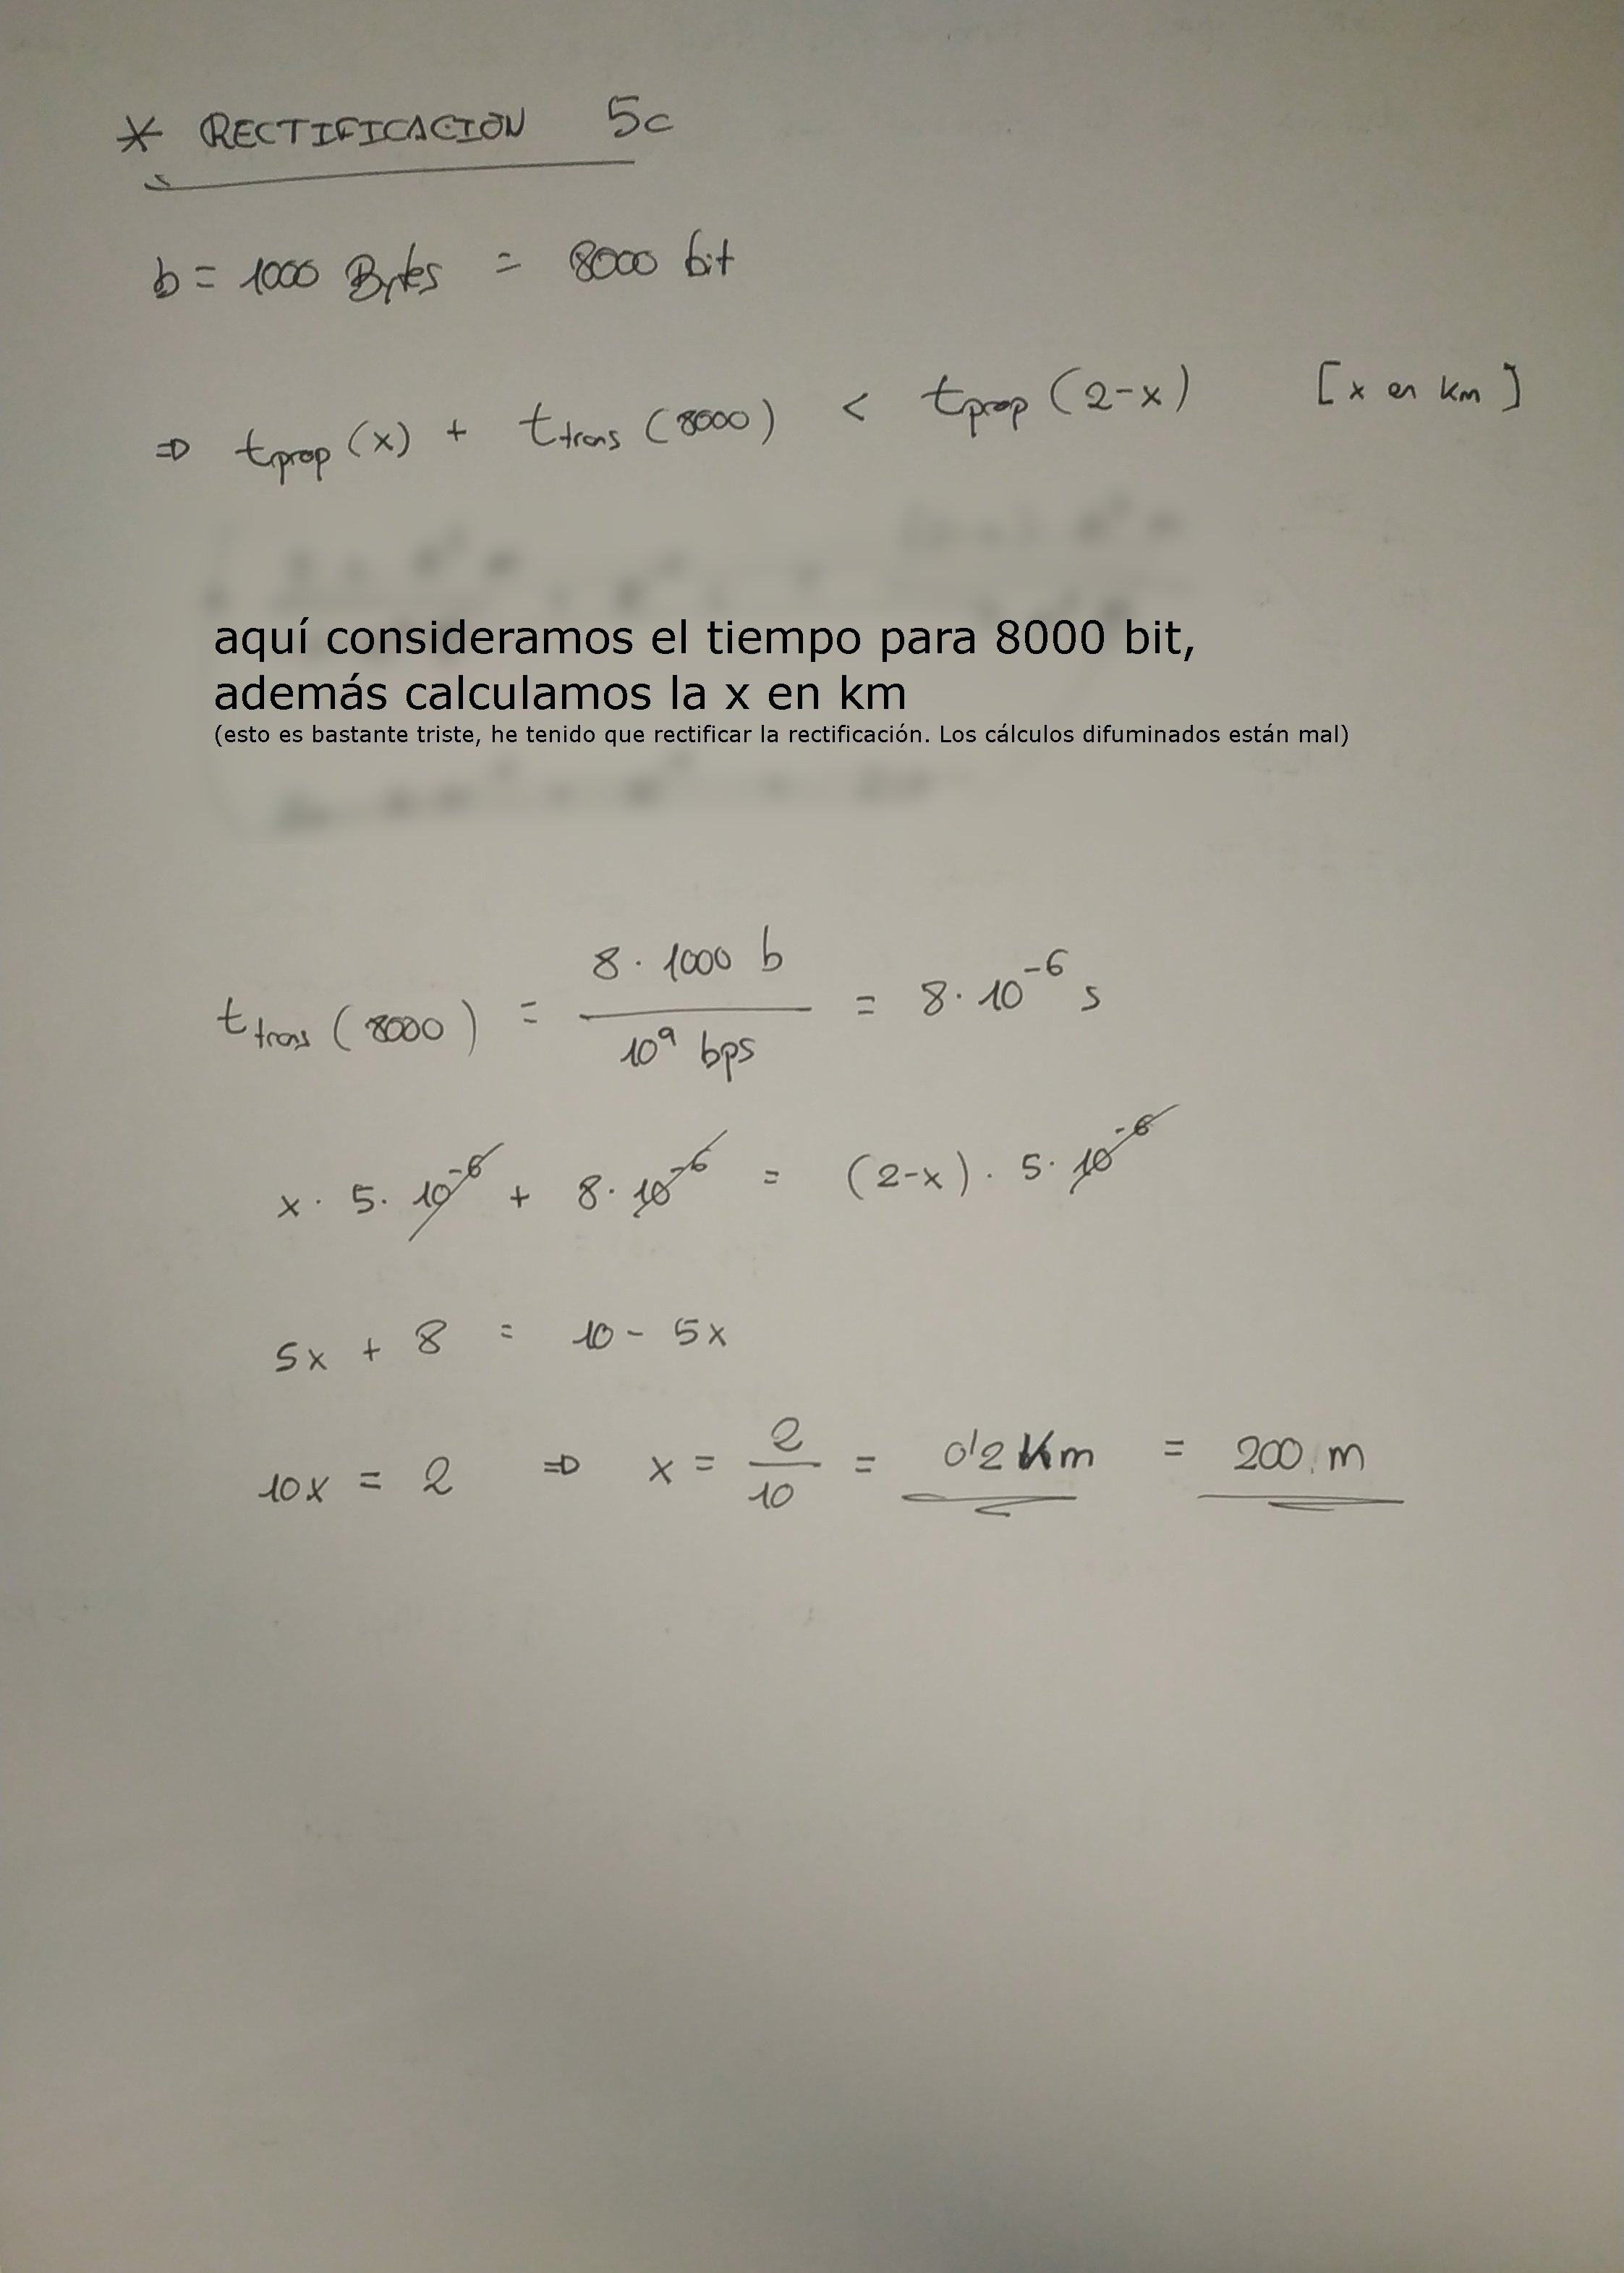 * RECTIFICACION 5c
b = 1000 Bytes = 8000 bit
⇒ t_prop (x) + t_trans (8000) < t_prop (2-x) [x en km]
aquí consideramos el tiempo para 8000 bit,
además calculamos la x en km
(esto es bastante triste, he tenido que rectificar la rectificación. Los cálculos difuminados están mal)
t_trans (8000) = 8·1000 b / 10^9 bps = 8·10^-6 s
x · 5 · 10^-6 + 8 · 10^-6 = (2-x) · 5 · 10^-6
5x + 8 = 10 - 5x
10x = 2 ⇒ x = 2/10 = 0'2 Km = 200 m